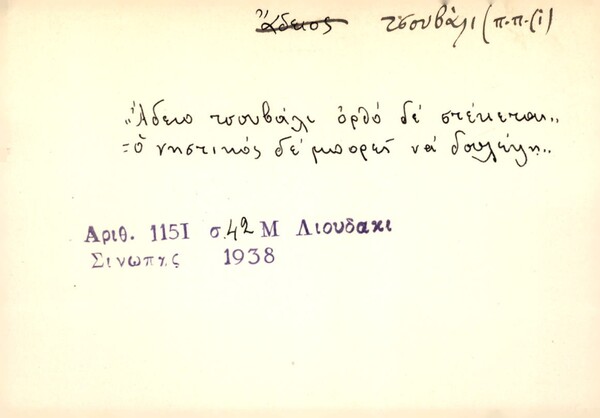 Ἄδειος τσουβάλι (π.π.(i)
„Ἄδειο τσουβάλι ὀρθό δέ στέκεται„
=ὁ νηστικός δέ μπορεῖ νά δουλέψη..
Αριθ. 1151 σ. 42 Μ Λιουδακι
Σινωπης 1938